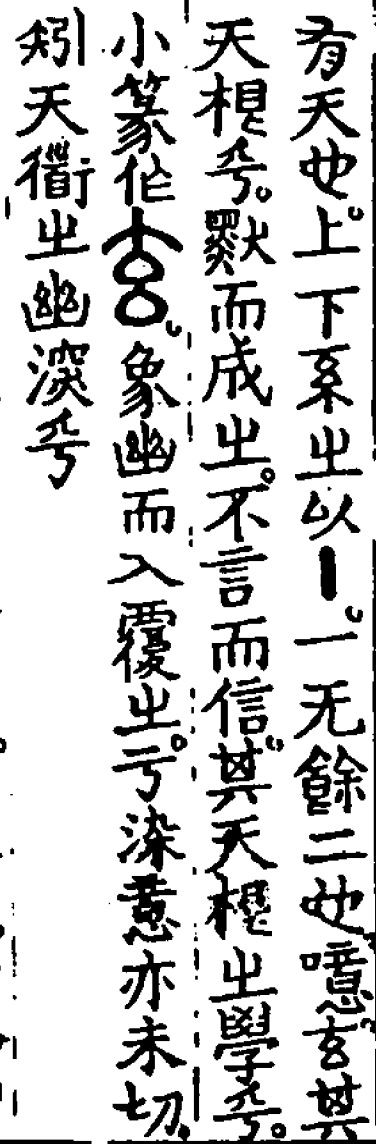 有天也。上下系㞢以丨。一无餘二也。噫。玄其
天根乎。默而成㞢。不言而信。其天根㞢學乎。
小篆作𤣥。象幽而入覆㞢。亏染意亦未切。
矧天衜㞢幽深乎